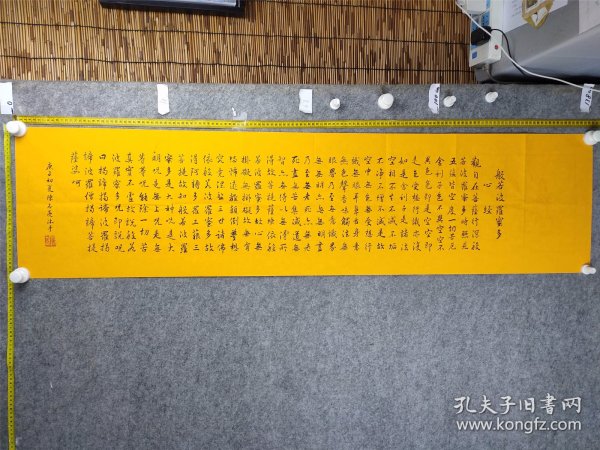 般若波羅蜜多
心經
觀自在菩薩行深般
若波羅蜜多時照見
五蘊皆空度一切苦厄
舍利子色不異空空不
異色色即是空空即
是色受想行識亦復
如是舍利子是諸法
空相不生不滅不垢
不淨不增不減是故
空中無色無受想行
識無眼耳鼻舌身意
無色聲香味觸法無
眼界乃至無意識界
無無明亦無無明盡
乃至無老死亦無老
死盡無苦集滅道無
智亦無得以無所
得故菩提薩埵依般
若波羅蜜多故心無
掛礙無掛礙故無有
恐怖遠離顛倒夢想
究竟涅槃三世諸佛
依般若波羅蜜多故
得阿耨多羅三藐三
菩提故知般若波羅
蜜多是大神咒是大
明咒是無上咒是無
等等咒能除一切苦
真實不虛故說般若
波羅蜜多咒即說咒
曰揭諦揭諦波羅揭
諦波羅僧揭諦菩提
薩婆訶
庚子初夏陳
孔夫子旧书网
www.kongfz.com